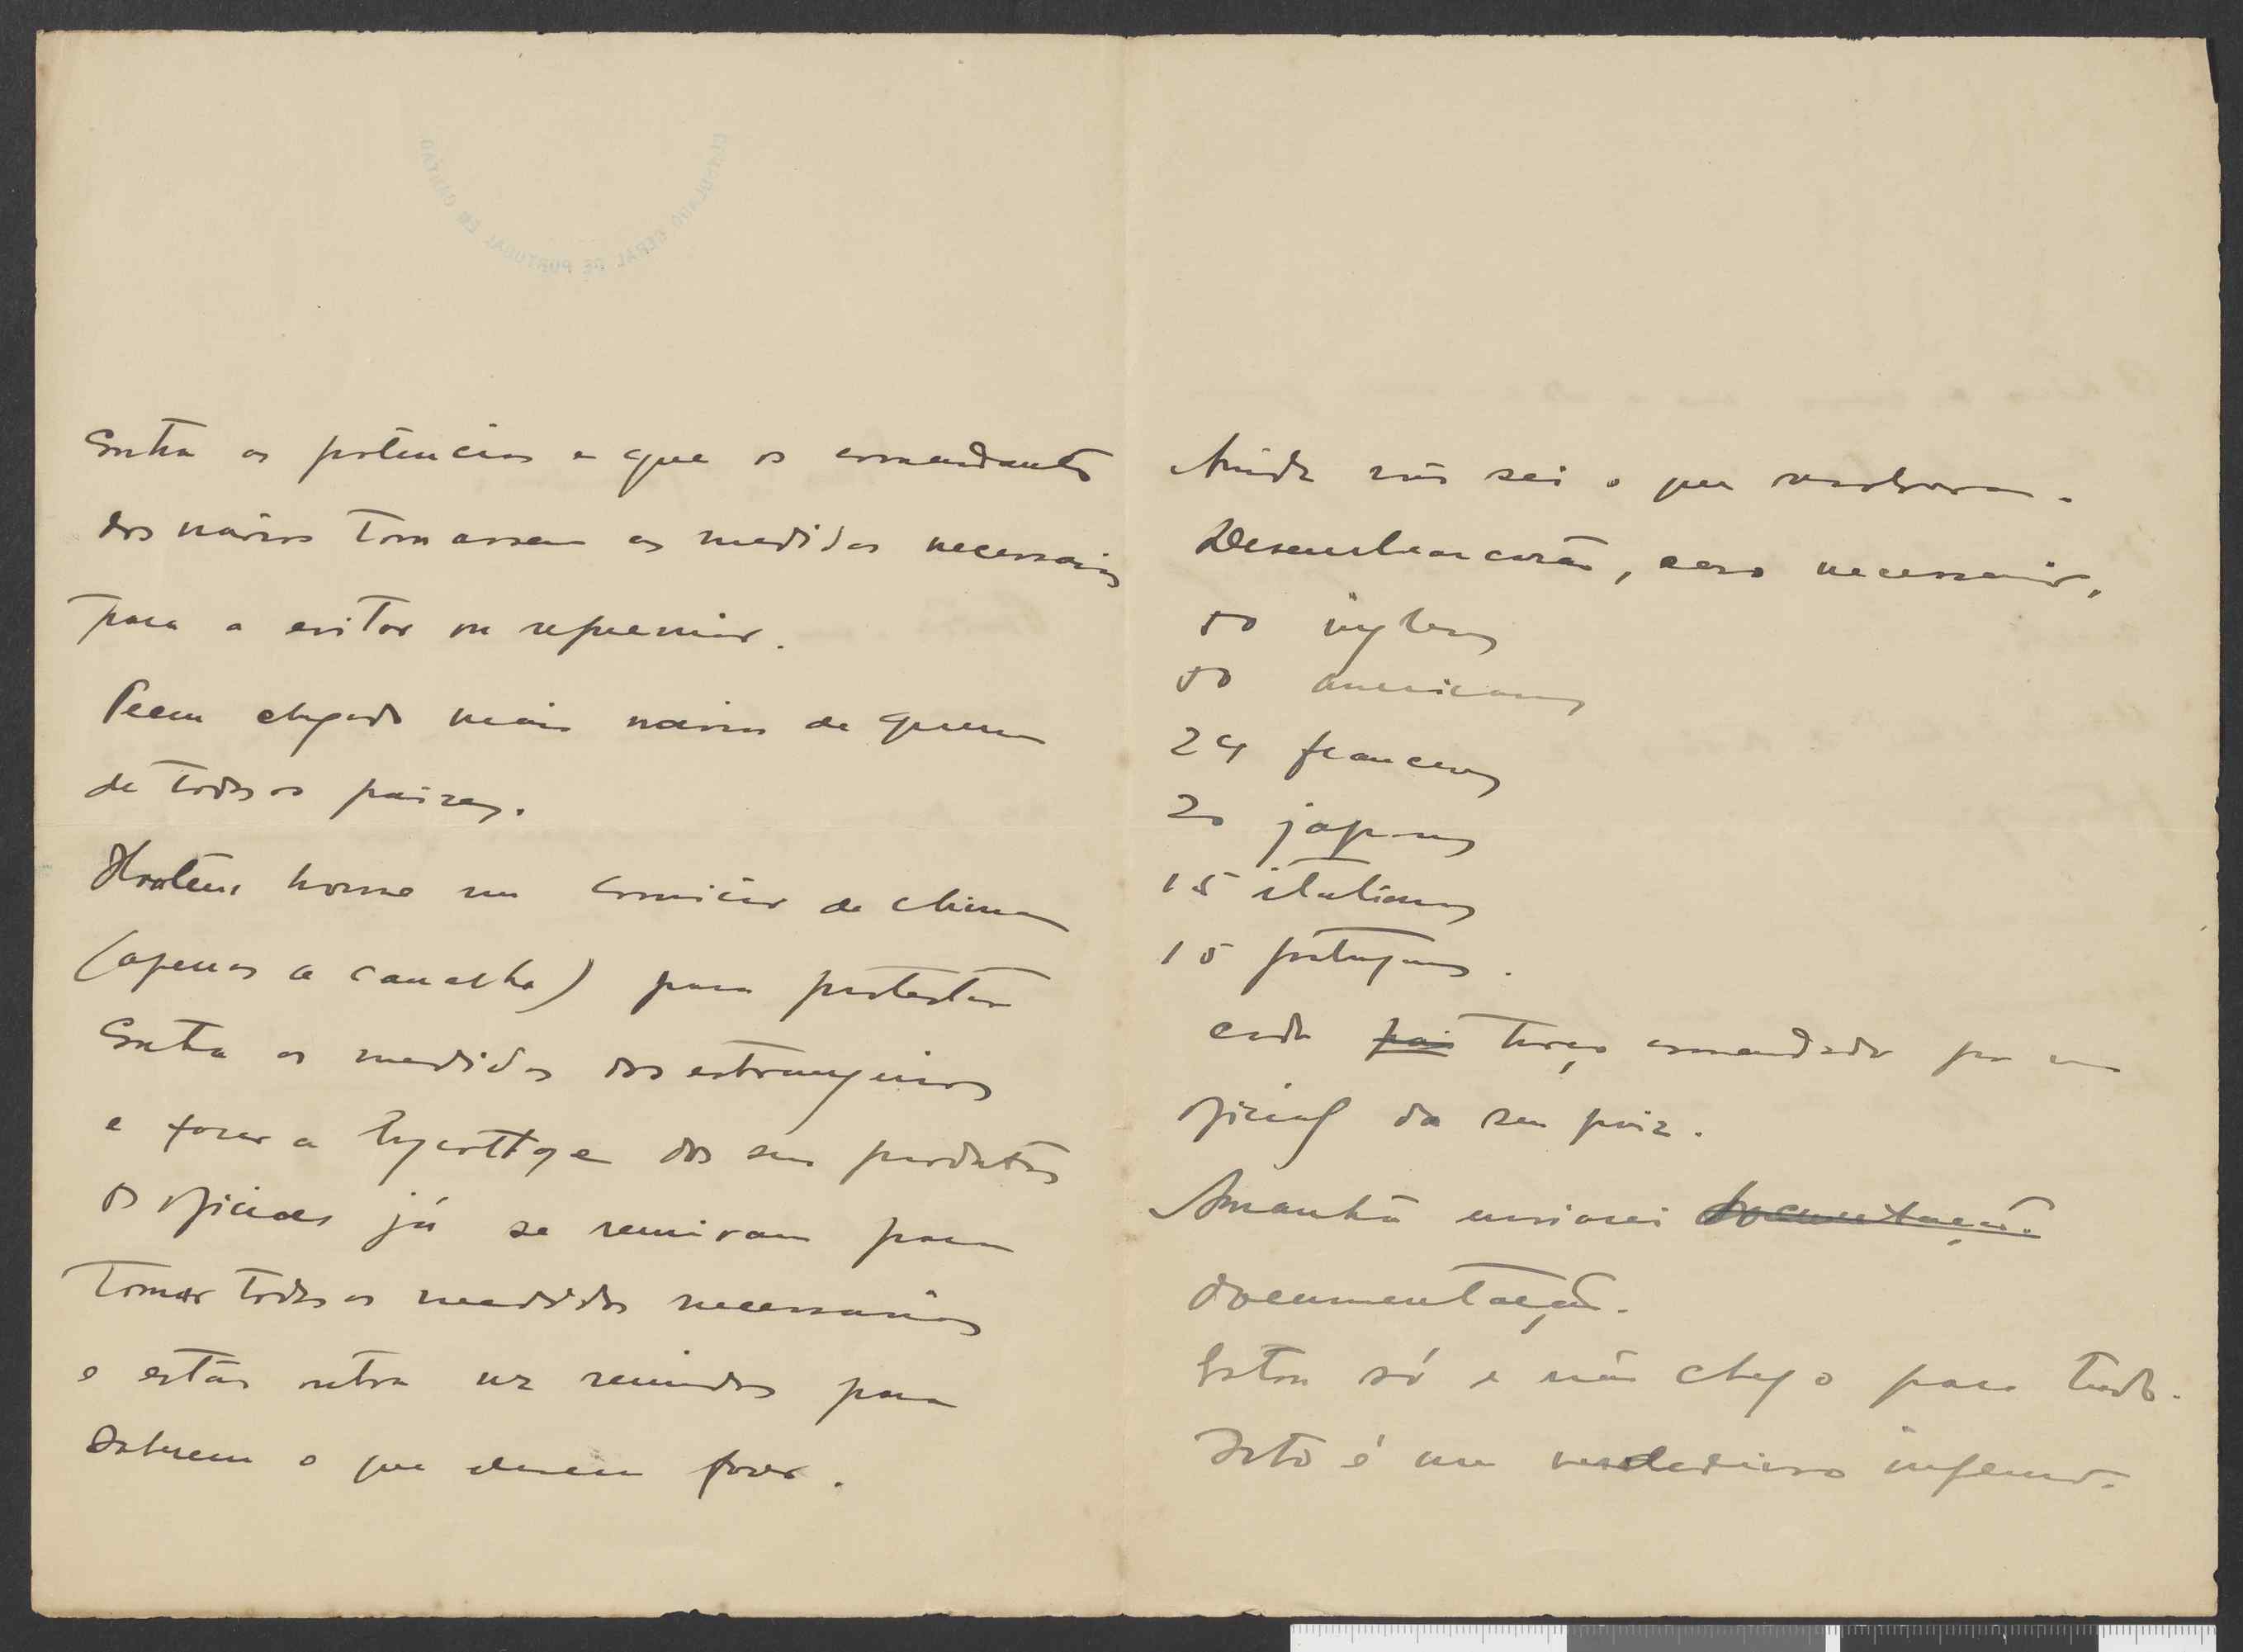 CONSULADO GERAL DE PORTUGAL EM CANTÃO
contra as potencias e que os comandantes
dos návios tomassem as medidas necessarias
para a evitar ou repremir.
Teem chegado mais navios de guerra
de todos os paizes.
Hontem houve um comicio de chinas
(apenas a canalha) para protestar
contra as medidas dos estrangeiros
e fazer a boycottage dos seus productos
Os oficiaes já se reuniram para
tomar todas as medidas necessarias
e estão outra vez reunidos para
saberem o que devem fazer.
Ainda não sei o que resolveram.
Desembarcarão, caso necessario,
50 inglezes
50 americanos
24 francezes
20 japonezes
15 italianos
15 portuguezes.
cada paiz terço comandado por um
oficial do seu paiz.
Amanhã enviarei documentação
documentação.
Estou só e não chego para tudo.
Isto é um verdadeiro inferno.